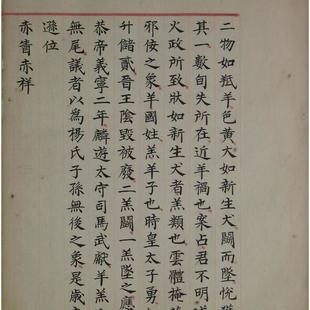 二物如羝羊色黃大如新生犬鬬而墜悅獲
其一數旬失所在近羊禍也案占君不明逆
火政所致狀如新生犬者羔類也雲體掩蔽
邪佞之象羊國姓羔羊子也時皇太子勇
升儲貳晉王陰毀被廢二羔鬬一羔墜之應
恭帝義寧二年麟遊太守司馬武獻羊羔
無尾議者以為楊氏子孫無後之象是歲
遜位
赤眚赤祥